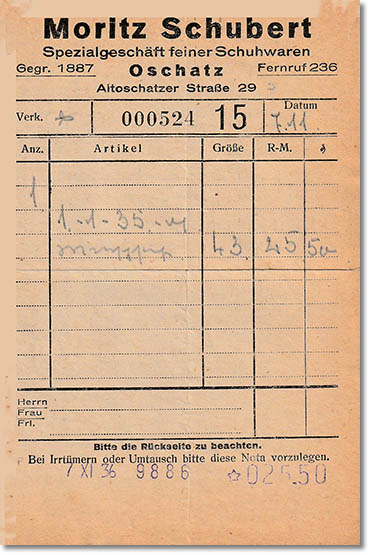 Moritz Schubert
Spezialgeschäft feiner Schuhwaren
Gegr. 1887 Oschatz Fernruf 236
Altoschatzer Straße 29
Verk. 000524 15 Datum 7.11
Anz. Artikel Größe R-M. ₰
1
1.-1-35.
43. 25 50
Herrn
Frau
Frl.
Bitte die Rückseite zu beachten.
Bei Irrtümern oder Umtausch bitte diese Nota vorzulegen.
7 XI 36 9886 ☆025.50